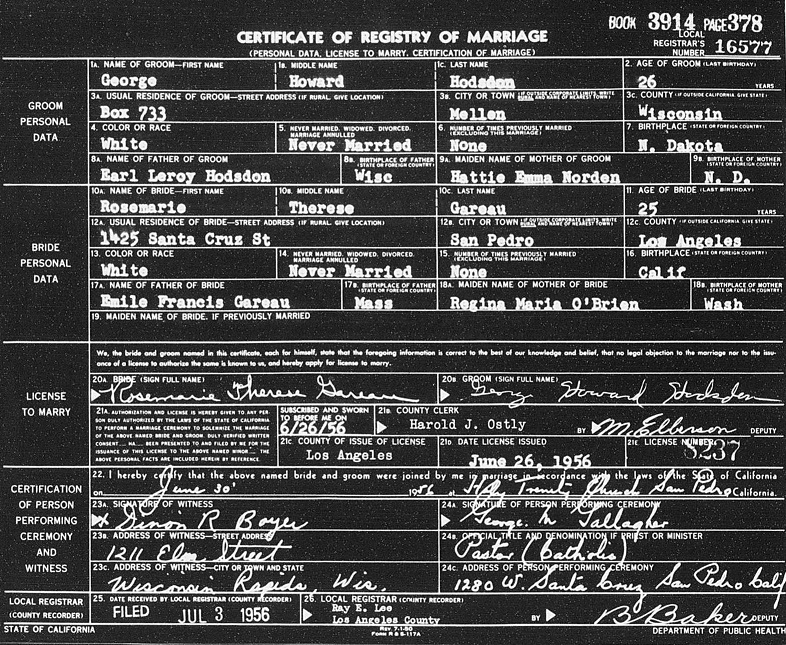 BOOK 3914 PAGE 378
CERTIFICATE OF REGISTRY OF MARRIAGE
(PERSONAL DATA, LICENSE TO MARRY, CERTIFICATION OF MARRIAGE)
LOCAL REGISTRAR'S NUMBER 16577
GROOM PERSONAL DATA
1A. NAME OF GROOM—FIRST NAME 1B. MIDDLE NAME 1C. LAST NAME 2. AGE OF GROOM (LAST BIRTHDAY)
George Howard Hodsdon 26 YEARS
3A. USUAL RESIDENCE OF GROOM—STREET ADDRESS (IF RURAL, GIVE LOCATION) 3B. CITY OR TOWN (IF OUTSIDE CORPORATE LIMITS, WRITE RURAL AND NAME OF NEAREST TOWN) 3C. COUNTY (IF OUTSIDE CALIFORNIA, GIVE STATE)
Box 733 Mellen Wisconsin
4. COLOR OR RACE 5. NEVER MARRIED, WIDOWED, DIVORCED, MARRIAGE ANNULLED 6. NUMBER OF TIMES PREVIOUSLY MARRIED (EXCLUDING THIS MARRIAGE) 7. BIRTHPLACE (STATE OR FOREIGN COUNTRY)
White Never Married None N. Dakota
8A. NAME OF FATHER OF GROOM 8B. BIRTHPLACE OF FATHER (STATE OR FOREIGN COUNTRY) 9A. MAIDEN NAME OF MOTHER OF GROOM 9B. BIRTHPLACE OF MOTHER (STATE OR FOREIGN COUNTRY)
Earl Leroy Hodsdon Wisc Hattie Emma Norden N. D.
BRIDE PERSONAL DATA
10A. NAME OF BRIDE—FIRST NAME 10B. MIDDLE NAME 10C. LAST NAME 11. AGE OF BRIDE (LAST BIRTHDAY)
Rosemarie Therese Gareau 25 YEARS
12A. USUAL RESIDENCE OF BRIDE—STREET ADDRESS (IF RURAL, GIVE LOCATION) 12B. CITY OR TOWN (IF OUTSIDE CORPORATE LIMITS, WRITE RURAL AND NAME OF NEAREST TOWN) 12C. COUNTY (IF OUTSIDE CALIFORNIA, GIVE STATE)
1425 Santa Cruz St San Pedro Los Angeles
13. COLOR OR RACE 14. NEVER MARRIED, WIDOWED, DIVORCED, MARRIAGE ANNULLED 15. NUMBER OF TIMES PREVIOUSLY MARRIED (EXCLUDING THIS MARRIAGE) 16. BIRTHPLACE (STATE OR FOREIGN COUNTRY)
White Never Married None Calif
17A. NAME OF FATHER OF BRIDE 17B. BIRTHPLACE OF FATHER (STATE OR FOREIGN COUNTRY) 18A. MAIDEN NAME OF MOTHER OF BRIDE 18B. BIRTHPLACE OF MOTHER (STATE OR FOREIGN COUNTRY)
Emile Francis Gareau Mass Regina Maria O'Brien Wash
19. MAIDEN NAME OF BRIDE, IF PREVIOUSLY MARRIED
LICENSE TO MARRY
We, the bride and groom named in this certificate, each for himself, state that the foregoing information is correct to the best of our knowledge and belief, that no legal objection to the marriage nor to the issuance of a license to authorize the same is known to us, and hereby apply for license to marry.
20A. BRIDE (SIGN FULL NAME) 20B. GROOM (SIGN FULL NAME)
Rosemarie Therese Gareau Howard Hodsdon
21A. AUTHORIZATION AND LICENSE IS HEREBY GIVEN TO ANY PERSON DULY AUTHORIZED BY THE LAWS OF THE STATE OF CALIFORNIA TO PERFORM A MARRIAGE CEREMONY TO SOLEMNIZE THE MARRIAGE OF THE ABOVE NAMED BRIDE AND GROOM. DULY VERIFIED WRITTEN CONSENT.... HA.... BEEN PRESENTED TO AND FILED BY ME FOR THE ISSUANCE OF THIS LICENSE TO THE ABOVE NAMED MINOR.... THE ABOVE PERSONAL FACTS ARE INCLUDED HEREIN BY REFERENCE.
SUBSCRIBED AND SWORN TO BEFORE ME ON 6/26/56
21B. COUNTY CLERK
Harold J. Ostly BY M. Ellerson DEPUTY
21C. COUNTY OF ISSUE OF LICENSE 21D. DATE LICENSE ISSUED 21E. LICENSE NUMBER
Los Angeles June 26, 1956 8237
CERTIFICATION OF PERSON PERFORMING CEREMONY AND WITNESS
22. I hereby certify that the above named bride and groom were joined by me in marriage in accordance with the laws of the State of California
on June 30 1956 at Holy Trinity Church San Pedro California.
23A. SIGNATURE OF WITNESS 24A. SIGNATURE OF PERSON PERFORMING CEREMONY
x Simon R Boyer George M Gallagher
23B. ADDRESS OF WITNESS—STREET ADDRESS 24B. OFFICIAL TITLE AND DENOMINATION IF PRIEST OR MINISTER
1211 Elm Street Pastor (Catholic)
23C. ADDRESS OF WITNESS—CITY OR TOWN AND STATE 24C. ADDRESS OF PERSON PERFORMING CEREMONY
Wisconsin Rapids, Wis. 1280 W. Santa Cruz San Pedro Calif
LOCAL REGISTRAR (COUNTY RECORDER)
25. DATE RECEIVED BY LOCAL REGISTRAR (COUNTY RECORDER) 26. LOCAL REGISTRAR (COUNTY RECORDER)
FILED JUL 3 1956 Ray E. Lee
Los Angeles County BY B Baker DEPUTY
STATE OF CALIFORNIA REV. 7-1-50 FORM R & S-117A DEPARTMENT OF PUBLIC HEALTH